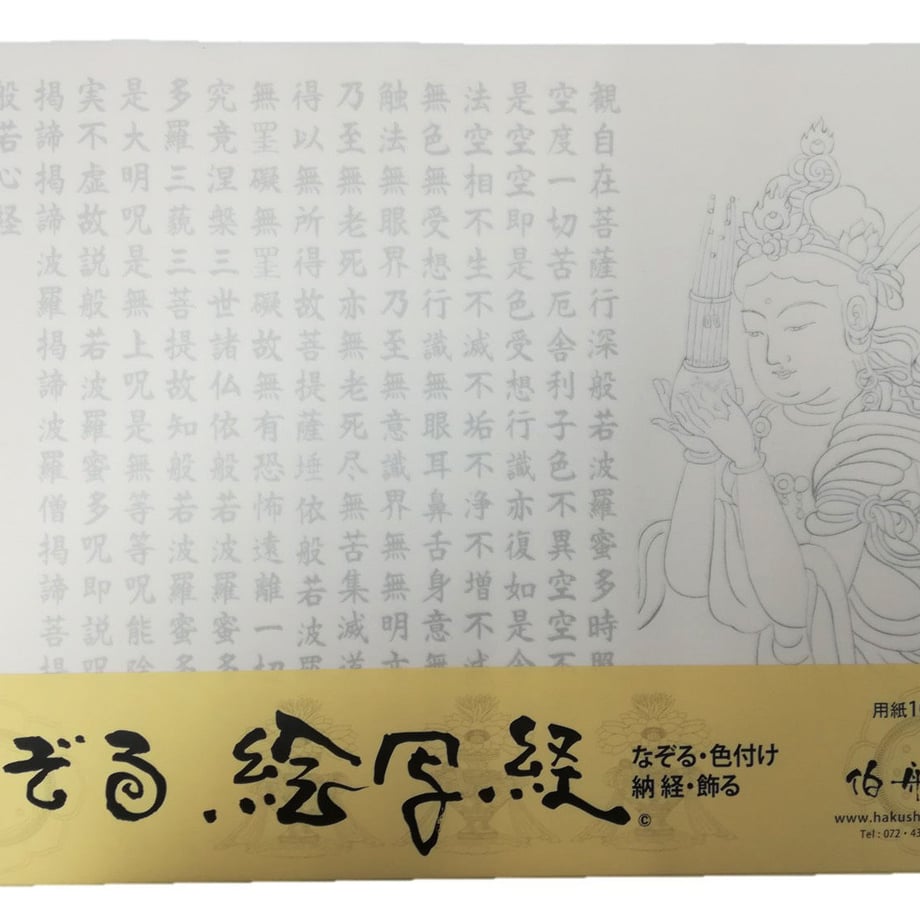 観自在菩薩行深般若波羅蜜多時照
空度一切苦厄舎利子色不異空空不
是空空即是色受想行識亦復如是舎
法空相不生不滅不垢不浄不増不減
無色無受想行識無眼耳鼻舌身意無
触法無眼界乃至無意識界無無明亦
乃至無老死亦無老死尽無苦集滅道
得以無所得故菩提薩埵依般若波羅
無罣礙無罣礙故無有恐怖遠離一切
究竟涅槃三世諸仏依般若波羅蜜多
多羅三藐三菩提故知般若波羅蜜多
是大明呪是無上呪是無等等呪能除
実不虚故説般若波羅蜜多呪即説呪
掲諦掲諦波羅掲諦波羅僧掲諦菩提
般若心経
ぞる 絵写経
©
なぞる・色付け
納経・飾る
用紙1
伯舟
www.hakush
Tel : 072・43